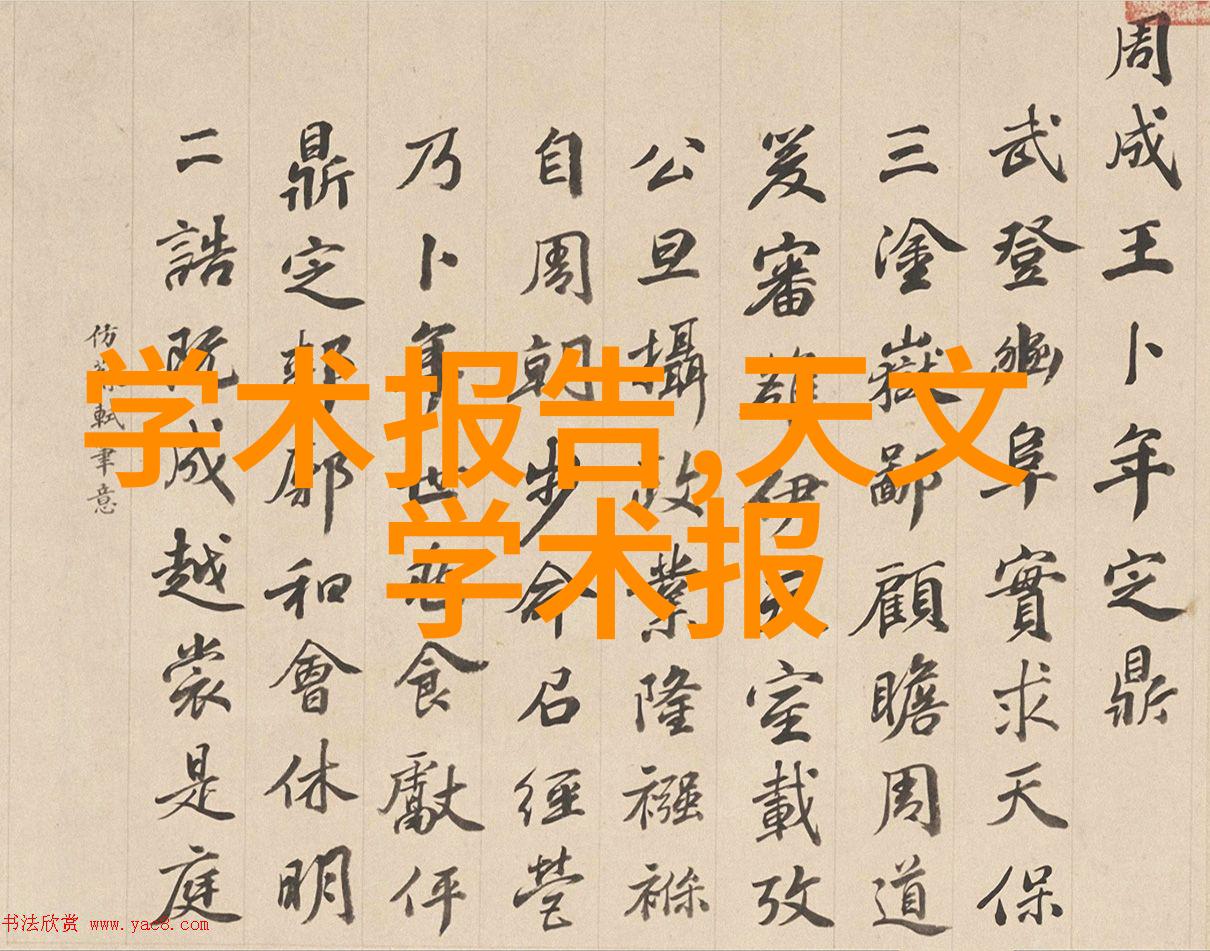 学术报告,天文
学术报
周成王卜年定鼎
武登豳阜實求天保
三塗嶽鄙顧瞻周道
爰審雒伊天室載攷
公旦攝政業隆襁褓
自周朝步命召經營
乃卜年世食獻伻
鼎定郟鄏和會休明
二誥既成越裳是庭
仿蘇軾筆意
书法欣赏 www.yac8.com